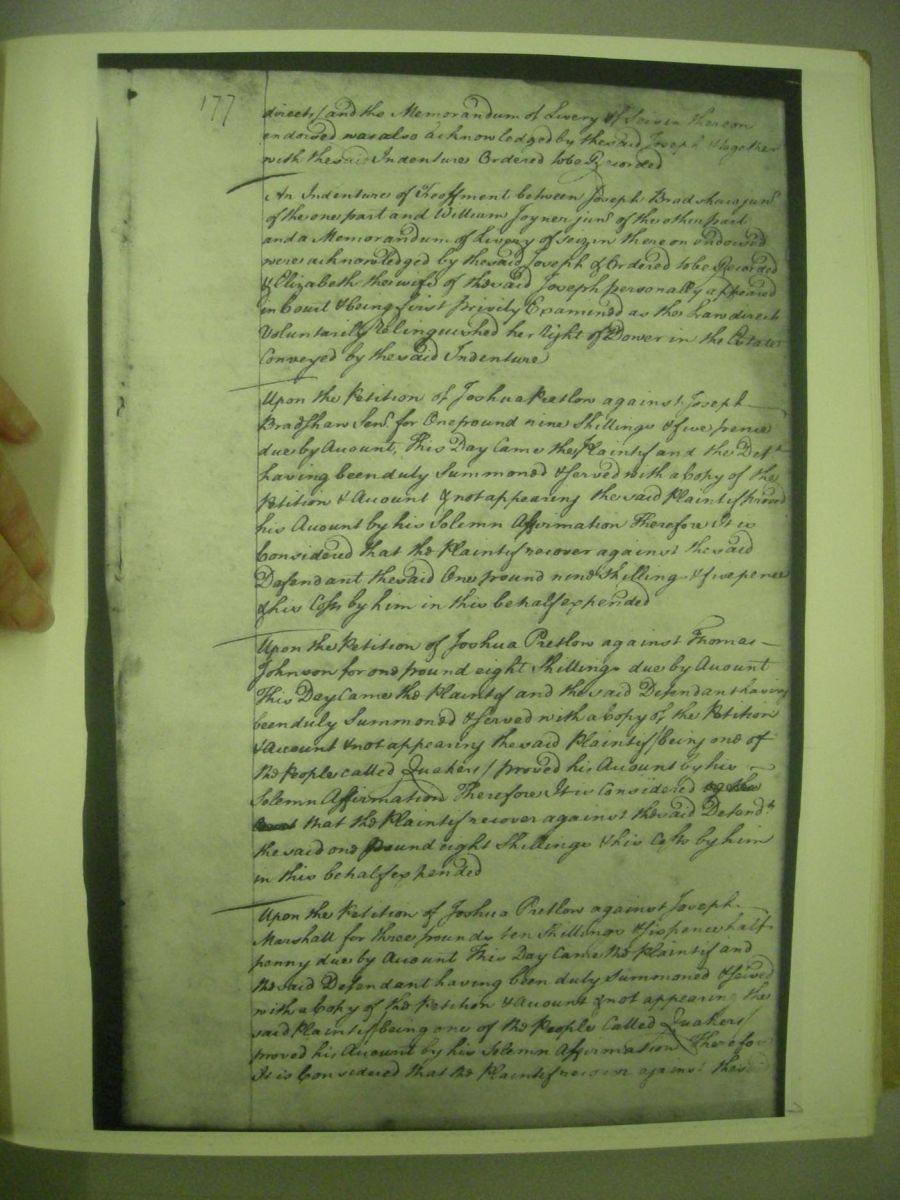 177
directs/ and the Memorandum of Livery & Seisin thereon
endorsed was also acknowledged by the said Joseph & together
with the said Indenture Ordered to be Recorded
An Indenture of Feoffment between Joseph Bradshaw junr
of the one part and William Joyner junr of the other part
and a Memorandum of Livery of seizin thereon endorsed
were acknowledged by the said Joseph & Ordered to be Recorded
& Elizabeth the wife of the said Joseph personally appeared
in Court & being first privily Examined as the Law direct
Voluntarily Relinquished her right of Dower in the Estate
Conveyed by the said Indenture
Upon the Petition of Joshua Pretlow against Joseph
Bradshaw Senr. for One pound nine Shillings & five pence
due by Account, This Day Came the Plaintif and the Deft
having been duly Summoned & served with a Copy of the
Petition & Account & not appearing the said Plaintif proved
his Account by his Solemn Affirmation Therefore It is
Considered that the Plaintif recover against the said
Defendant the said One pound nine Shillings & five pence
& his Costs by him in this behalf expended
Upon the Petition of Joshua Pretlow against Thomas
Johnson for one pound eight Shillings due by Account
This Day Came the Plaintif and the said Defendant having
been duly Summoned & served with a Copy of the Petition
& Account & not appearing the said Plaintif /being one of
the People called Quakers/ proved his Account by his
Solemn Affirmation Therefore It is Considered by the
Court that the Plaintif recover against the said Defendt
the said one pound eight Shillings & his Costs by him
in this behalf expended
Upon the Petition of Joshua Pretlow against Joseph
Marshall for three pounds ten Shillings & six pence half
penny due by Account This Day Came the Plaintif and
the said Defendant having been duly Summoned & served
with a Copy of the Petition & Account & not appearing the
said Plaintif /being one of the People Called Quakers/
proved his Account by his Solemn Affirmation Therefore
It is Considered that the Plaintif recover against the said